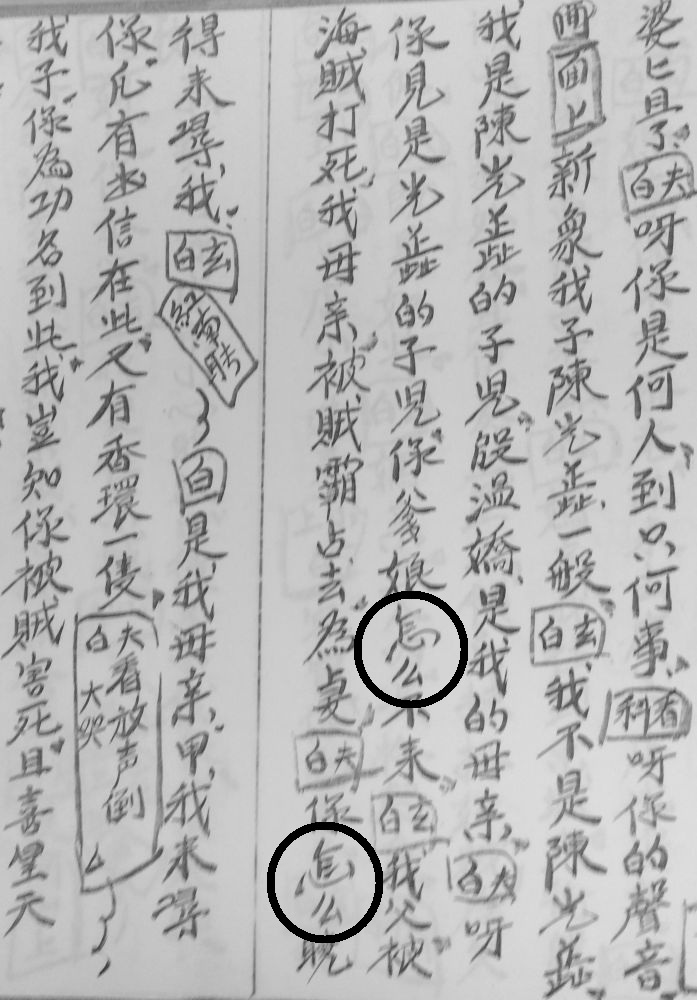 婆亡旦了白夫呀保是何人到只何事科看呀保的聲音
面上新象我子陳光蕋一般白玄我不是陳光蕋
我是陳光蕋的子児殷温嬌是我的母亲白夫呀
保見是光蕋的子児保爹娘怎么不来白玄我父被
海賊打死我母亲被賊霸占去為妻白夫保怎么晓
得来尋我白玄
白是我母亲甲我来尋
保凢有书信在此又有香環一隻白夫看放声倒大哭
我子保為功名到此我豈知保被賊害死且喜皇天